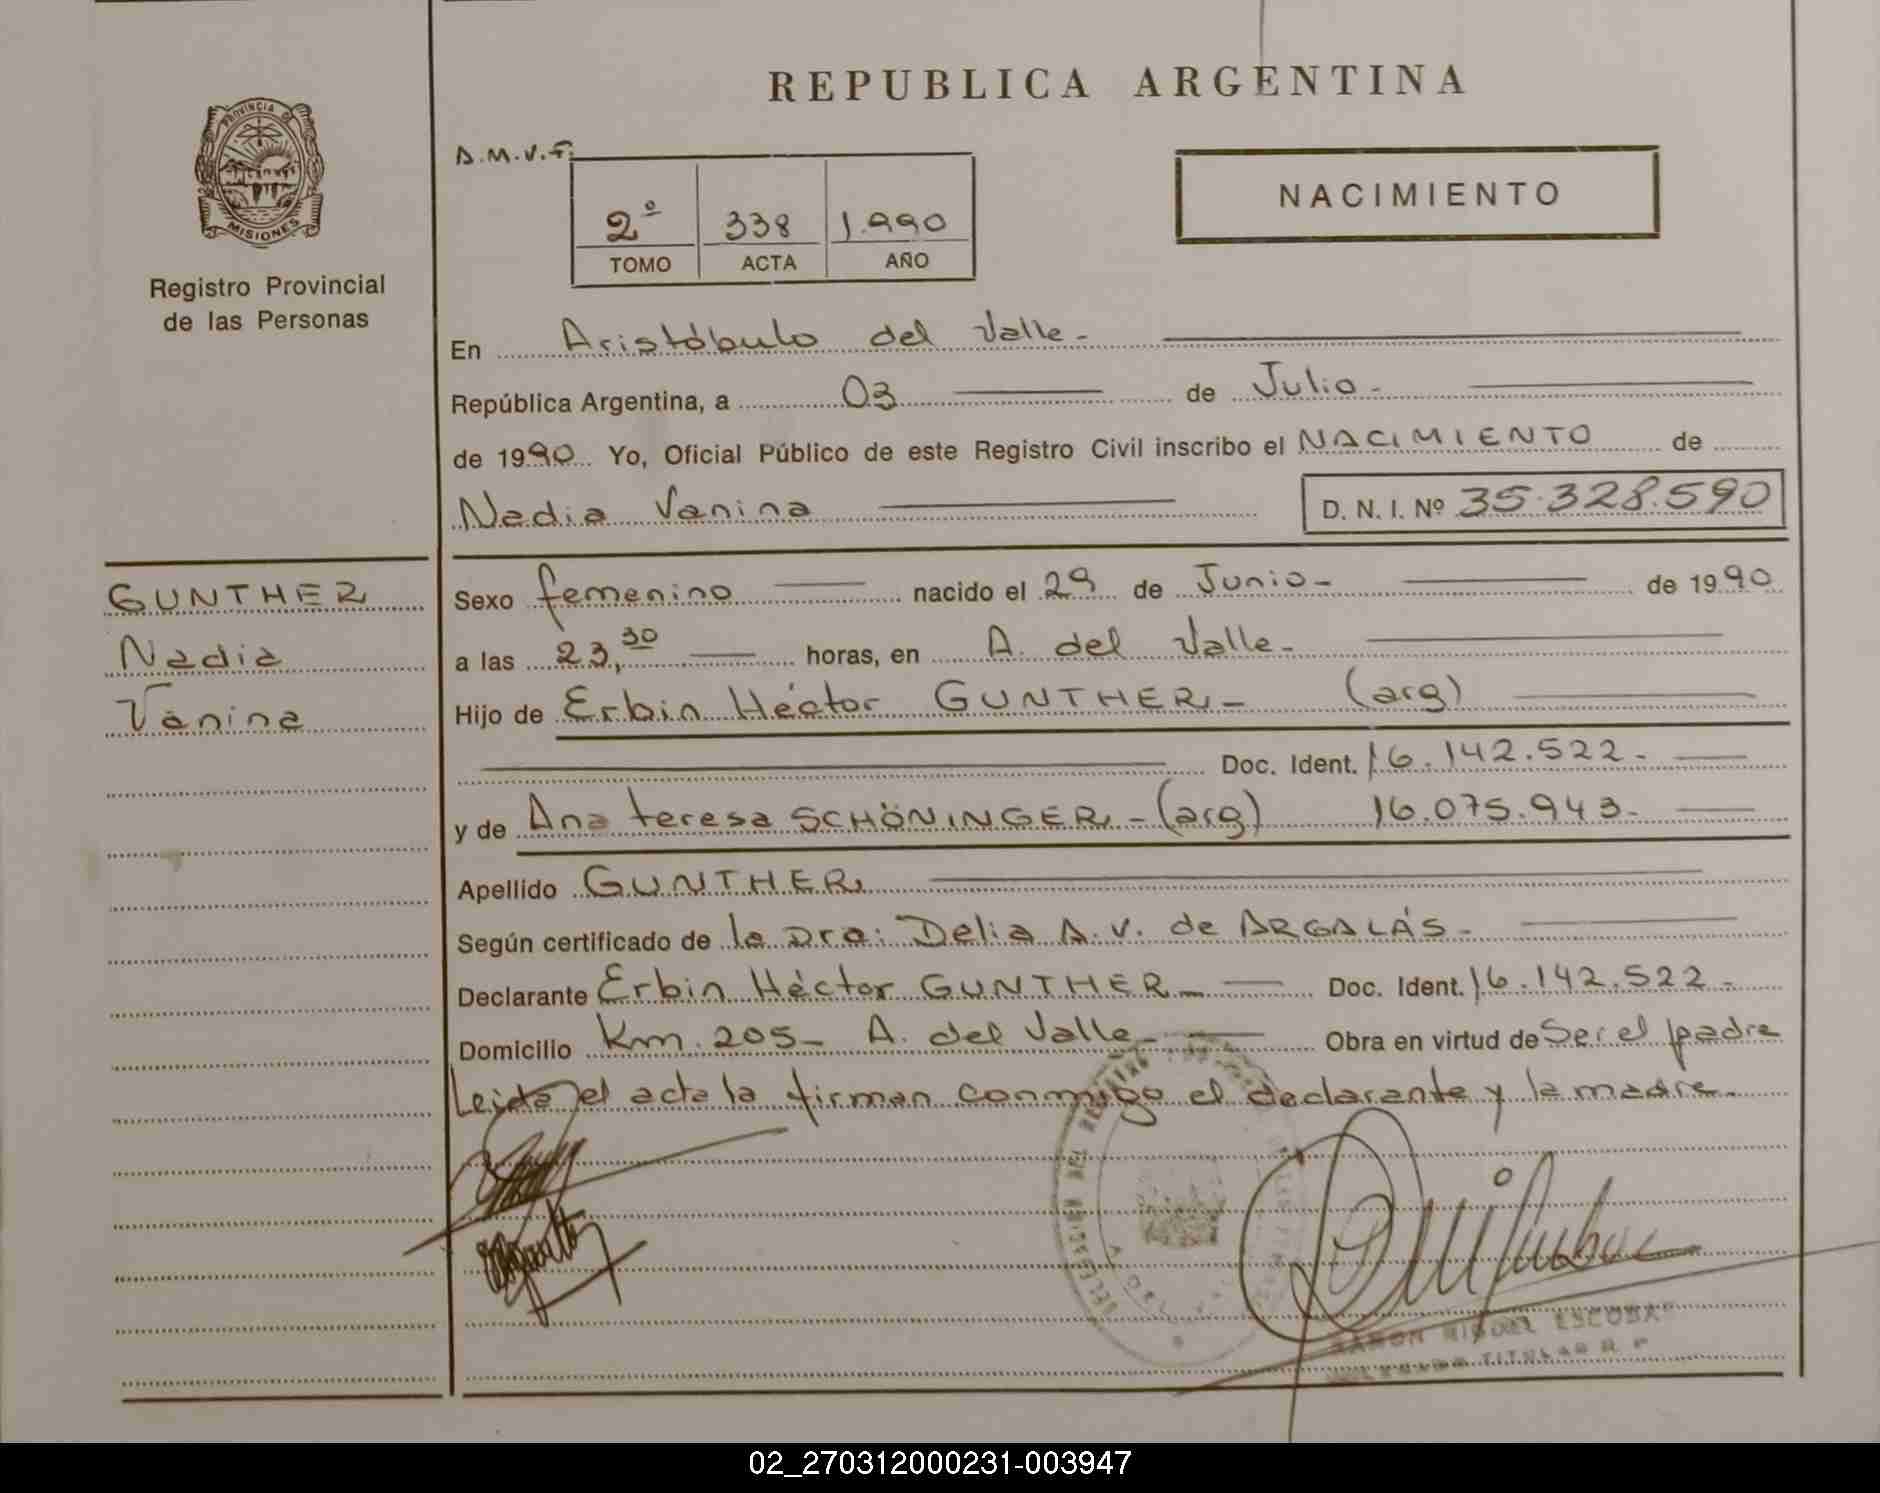 REPUBLICA ARGENTINA
PROVINCIA DE
MISIONES
Registro Provincial
de las Personas
D.M.V.F.
NACIMIENTO
2º 338 1.990
TOMO ACTA AÑO
En Aristóbulo del Valle-
República Argentina, a 03 de Julio-
de 1990 Yo, Oficial Público de este Registro Civil inscribo el NACIMIENTO de
Nadia Vanina D. N. I. Nº 35.328.590
GUNTHER
Nadia
Vanina
Sexo femenino nacido el 29 de Junio- de 1990
a las 23,30 horas, en A. del Valle-
Hijo de Erbin Héctor GUNTHER- (arg)
Doc. Ident. 16.142.522-
y de Ana teresa SCHÖNINGER-(arg) 16.075.943-
Apellido GUNTHER
Según certificado de la Dra: Delia A.V. de ARGALÁS-
Declarante Erbin Héctor GUNTHER- Doc. Ident. 16.142.522-
Domicilio Km. 205- A. del Valle- Obra en virtud de Ser el padre
Leida el acta la firman conmigo el declarante y la madre-
RAMON MIGUEL ESCOBAR
TITULAR R. P
02_270312000231-003947